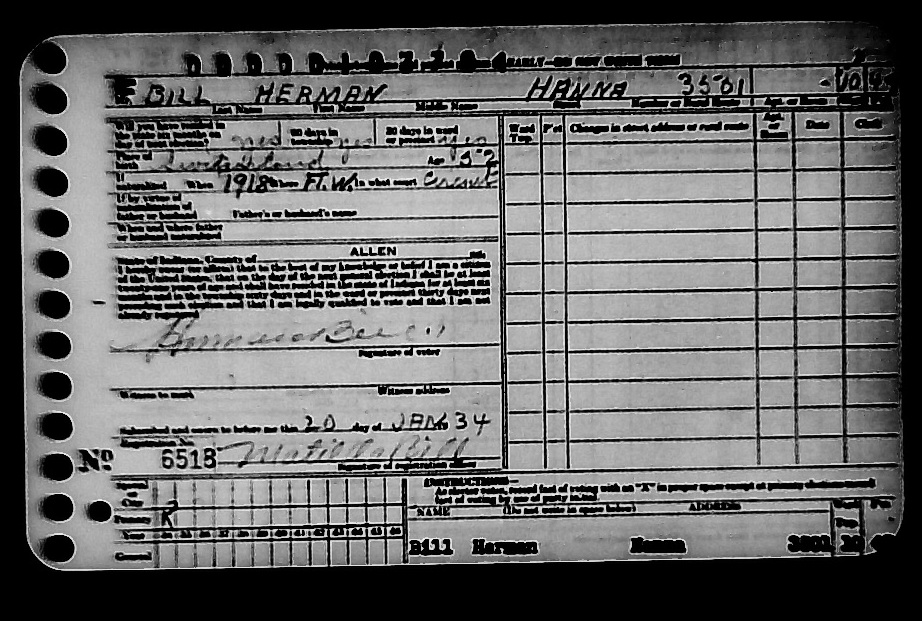 BILL HERMAN HANNA 3501 10
Last Name First Name Middle Name Number or Rural Route Apt. or Room
Will you have resided in
this state six months on
day of next election? yes 60 days in township yes 30 days in ward or precinct yes
Ward Twp. P'ct Changes in street address or rural route Apt. or Room Date Clerk
Place of birth Switzerland Age 52
If naturalized When 1918 Where Ft. W. In what court Circuit
If by virtue of
naturalization of
father or husband Father's or husband's name
When and where father
or husband naturalized
State of Indiana, County of ALLEN ss.
I hereby swear (or affirm) that to the best of my knowledge or belief I am a citizen
of the United States, that on the day of the next general election I shall be at least
twenty-one years of age and shall have resided in the state of Indiana for at least six
months and in the township sixty days and in the ward or precinct thirty days next
such election and that I am legally qualified to vote and that I am not
already registered.
Herman Bill
Signature of voter
Witness to mark Witness address
Subscribed and sworn to before me this 20 day of JAN. 34
Registration No.
Nº 6518 Matilda Bill
Signature of registration officer
INSTRUCTIONS—
Special or City
Primary R
Year 34 35 36 37 38 39 40 41 42 43 44 45 46
General
NAME (Do not write in space below) ADDRESS Ward Twp. Pct
Bill Herman Hanna 3501 10